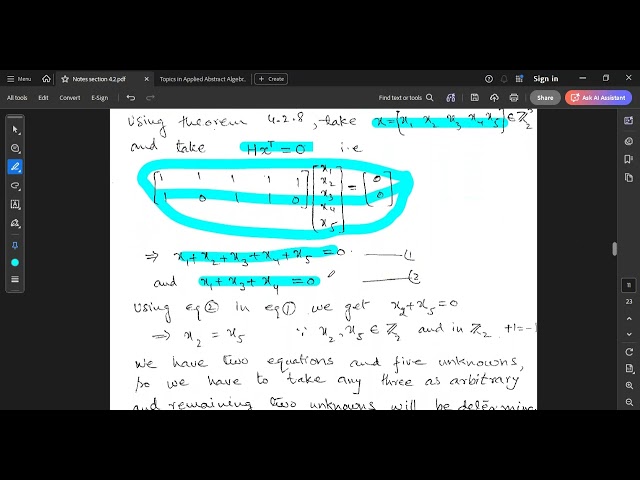 Menu
Notes section 4.2.pdf
Topics in Applied Abstract Algebr..
Sign in
All tools Edit Convert E-Sign
Find text or tools
Share
Ask AI Assistant
Using theorem 4.2.8, take x=[x1 x2 x3 x4 x5] ∈ Z_2^5
and take Hx^T = 0 i.e
[1 1 1 1 1] [x1] = [0]
[1 0 1 1 0] [x2] [0]
x3
x4
x5
⇒ x1+x2+x3+x4+x5 = 0. —— (1
and x1+x3+x4 = 0 —— (2
Using eq ② in eq ① we get x2+x5=0
⇒ x2 = x5 ∵ x2, x5 ∈ Z2 and in Z2 +1=-1
We have two equations and five unknowns,
so we have to take any three as arbitrary
and remaining two unknowns will be determine
11
23